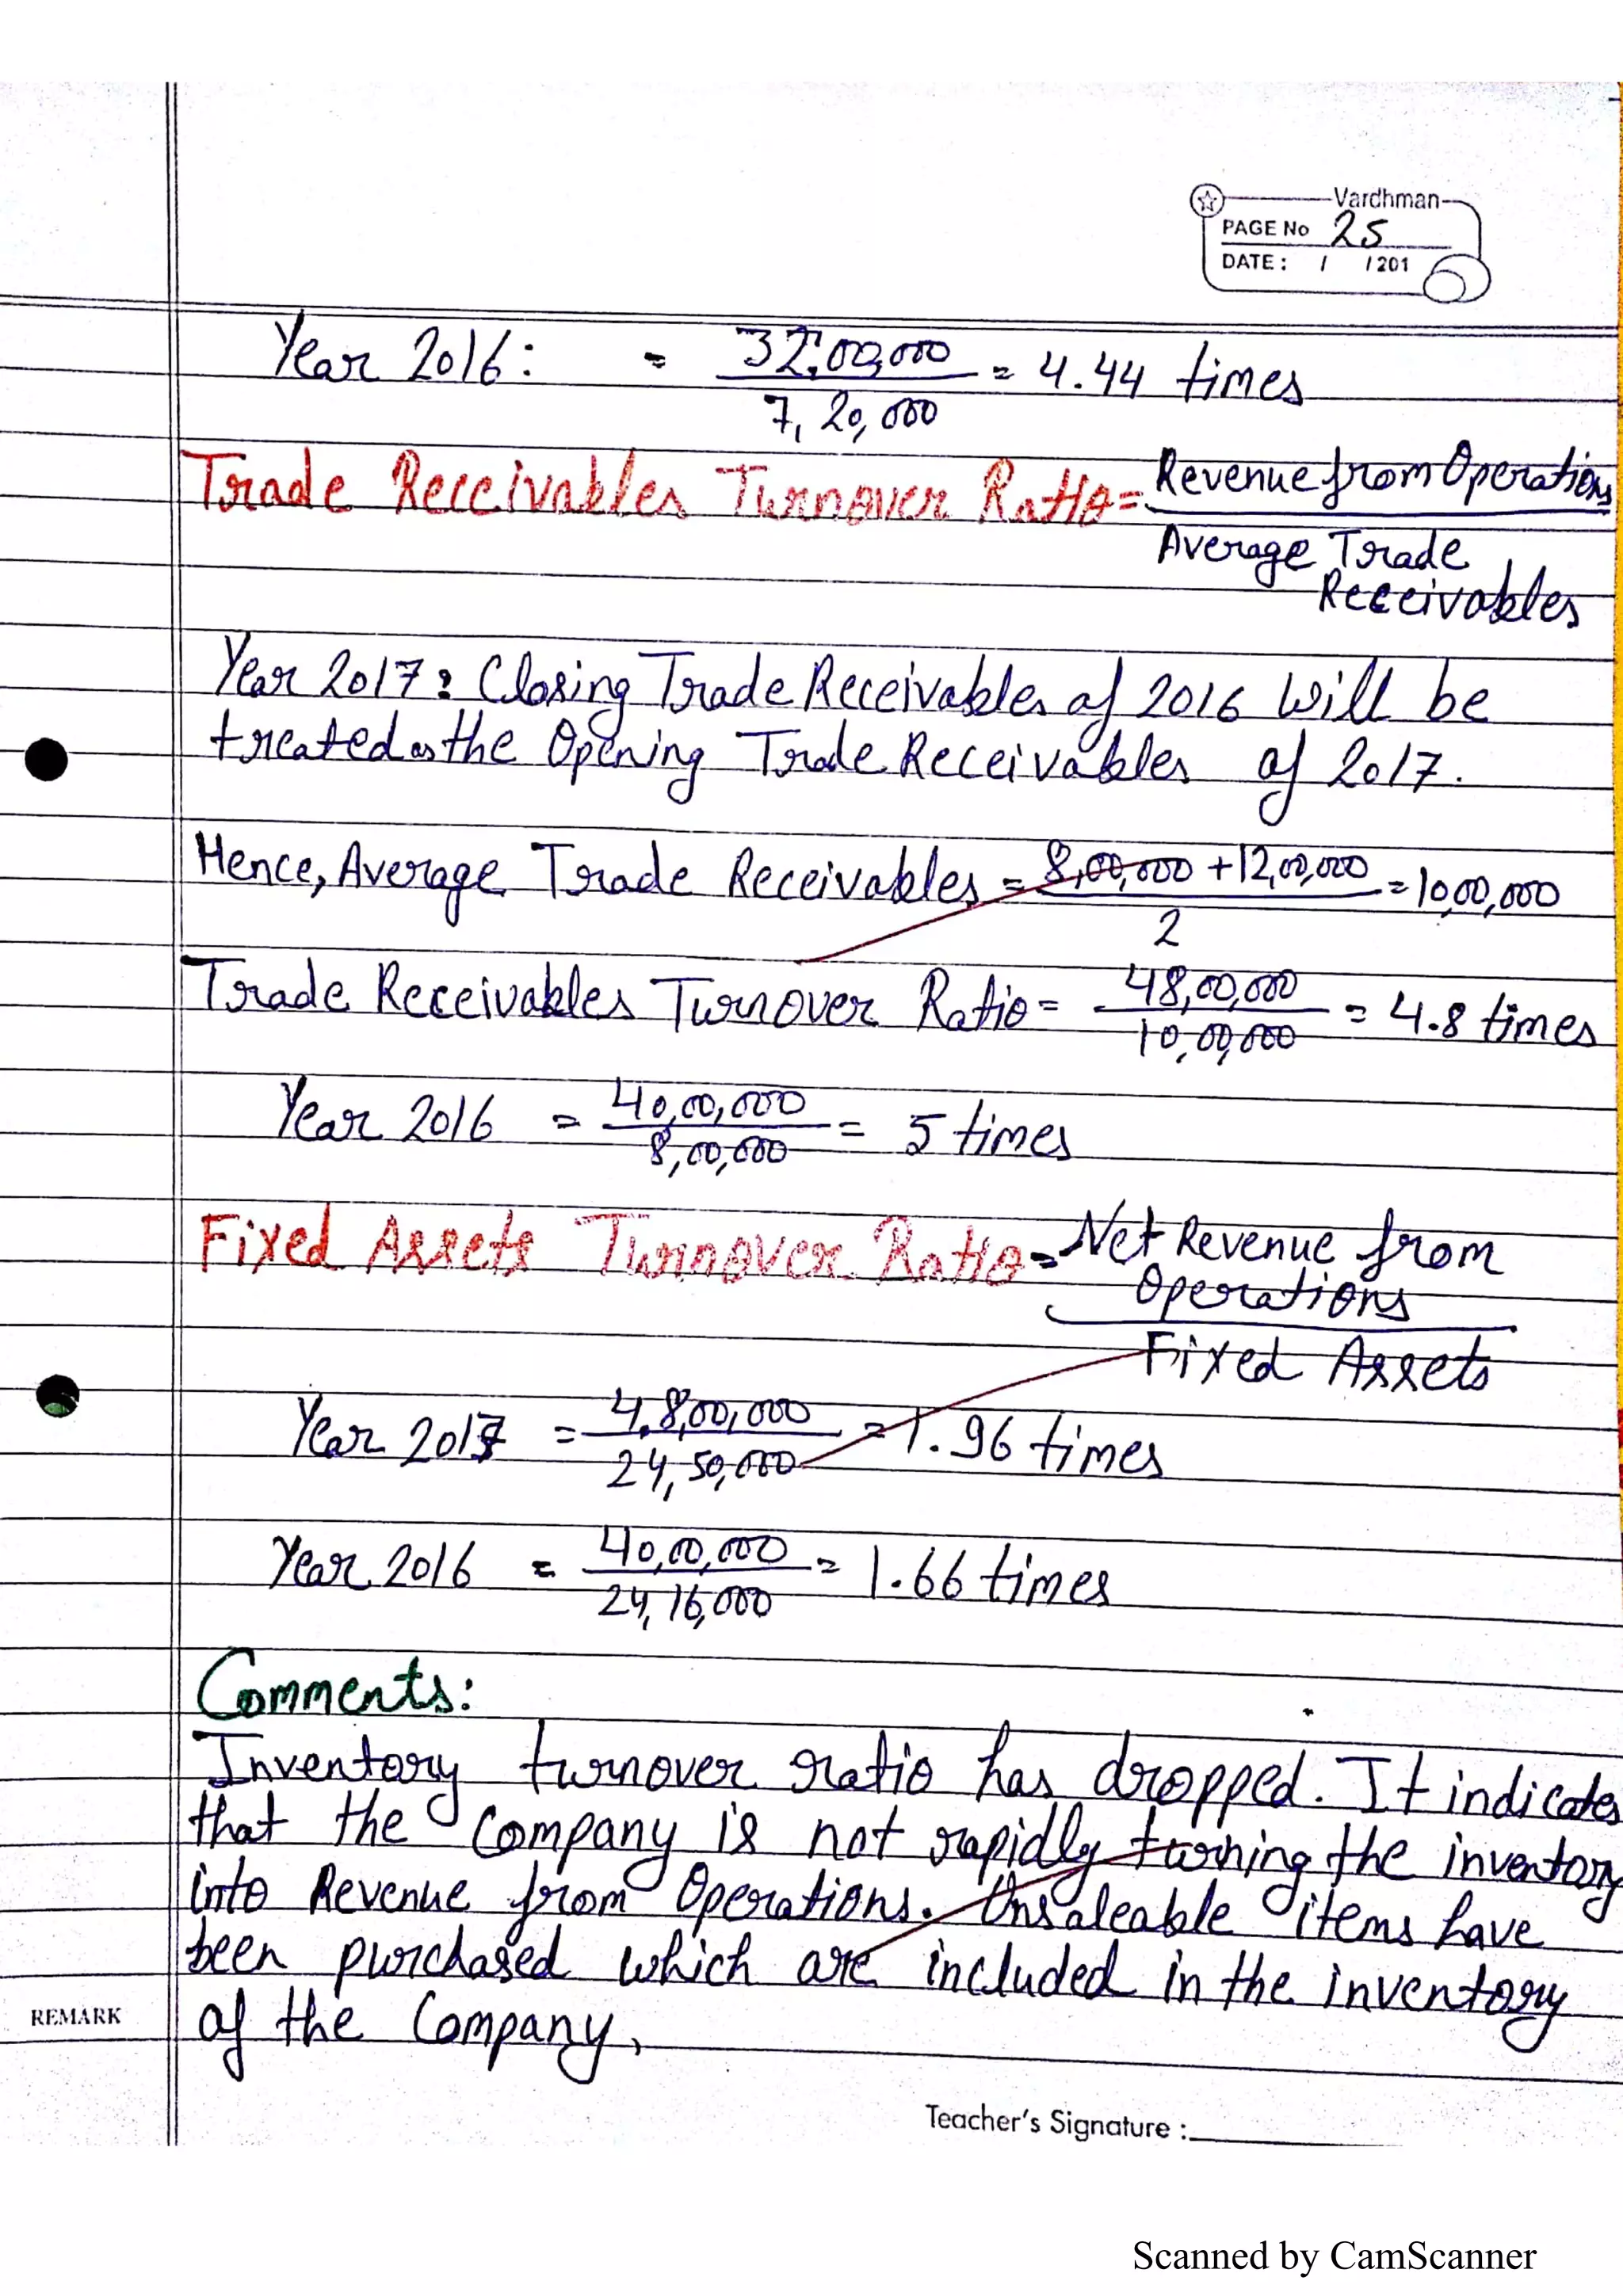 Vardhman
PAGE No 25
DATE : / / 201
Year 2016: = 32,00,000 / 7,20,000 = 4.44 times
Trade Receivables Turnover Ratio = Revenue from Operations
Average Trade
Receivables
Year 2017: Closing Trade Receivables of 2016 will be
treated as the Opening Trade Receivables of 2017.
Hence, Average Trade Receivables = 8,00,000 + 12,00,000 / 2 = 10,00,000
Trade Receivables Turnover Ratio = 48,00,000 / 10,00,000 = 4.8 times
Year 2016 = 40,00,000 / 8,00,000 = 5 times
Fixed Assets Turnover Ratio = Net Revenue from
Operations
Fixed Assets
Year 2017 = 4,8,00,000 / 24,50,000 = 1.96 times
Year 2016 = 40,00,000 / 24,16,000 = 1.66 times
Comments:
Inventory turnover ratio has dropped. It indicates
that the Company is not rapidly turning the inventory
into Revenue from Operations. Unsaleable items have
been purchased which are included in the inventory
of the Company,
REMARK
Teacher's Signature :
Scanned by CamScanner